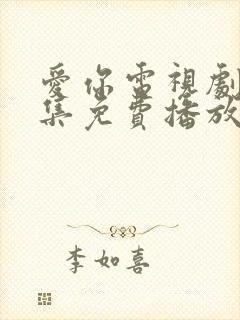 愛你電視劇
集免費播放
李如喜